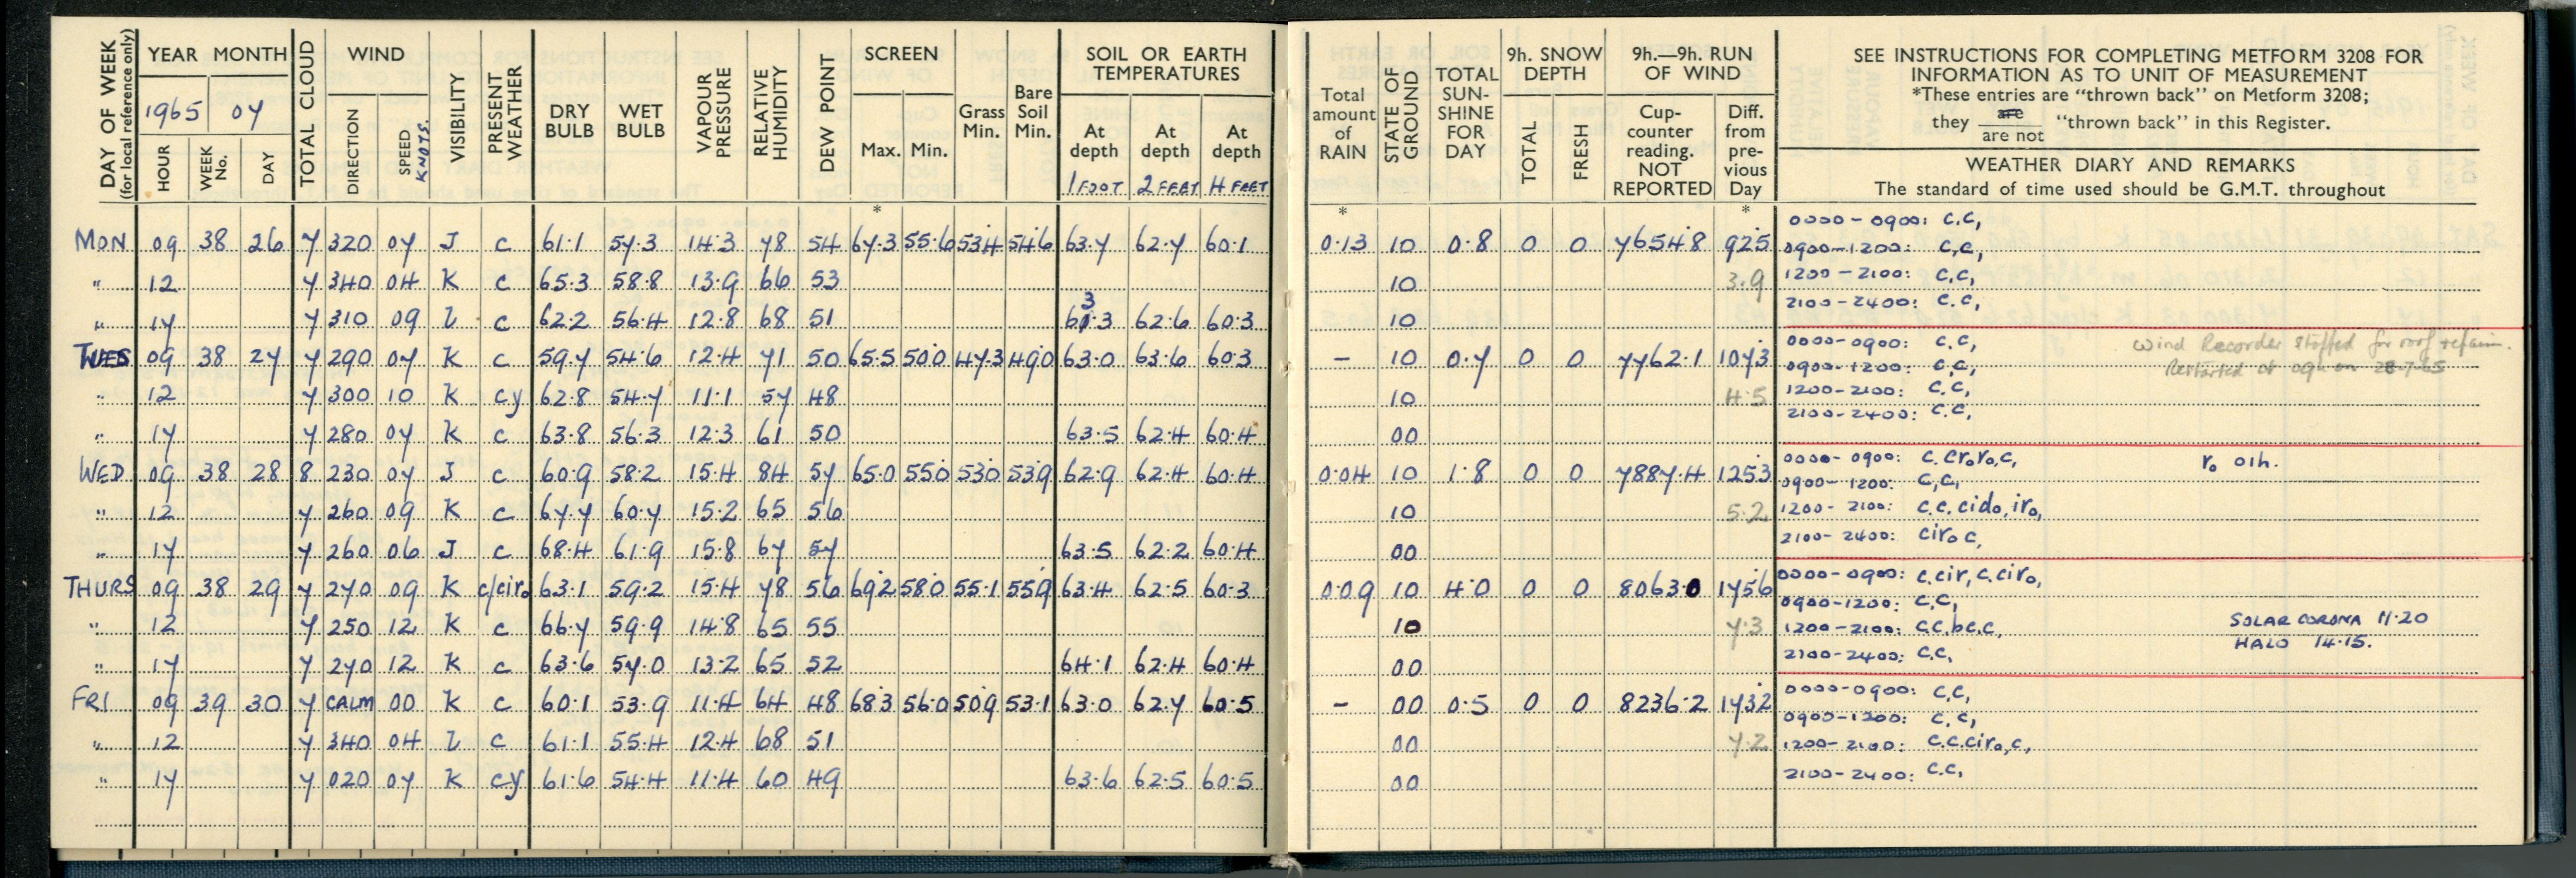 DAY OF WEEK (for local reference only)
YEAR MONTH
1965 07
HOUR WEEK No. DAY
TOTAL CLOUD
WIND
DIRECTION SPEED KNOTS.
VISIBILITY
PRESENT WEATHER
DRY BULB
WET BULB
VAPOUR PRESSURE
RELATIVE HUMIDITY
DEW POINT
SCREEN
Max. Min.
*
Grass Min.
Bare Soil Min.
SOIL OR EARTH TEMPERATURES
At depth 1 FOOT
At depth 2 FEET
At depth 4 FEET
MON 09 38 26 7 320 07 J c 61.1 57.3 14.3 78 54 67.3 55.6 53.4 54.6 63.7 62.7 60.1
" 12 7 340 04 K c 65.3 58.8 13.9 66 53
" 17 7 310 09 L c 62.2 56.4 12.8 68 51 63.3 62.6 60.3
TUES 09 38 27 7 290 07 K c 59.7 54.6 12.4 71 50 65.5 50.0 47.3 49.0 63.0 63.6 60.3
" 12 7 300 10 K cy 62.8 54.7 11.1 57 48
" 17 7 280 07 K c 63.8 56.3 12.3 61 50 63.5 62.4 60.4
WED 09 38 28 8 230 07 J c 60.9 58.2 15.4 84 57 65.0 55.0 53.0 53.9 62.9 62.4 60.4
" 12 7 260 09 K c 67.7 60.7 15.2 65 56
" 17 7 260 06 J c 68.4 61.9 15.8 67 57 63.5 62.2 60.4
THURS 09 38 29 7 270 09 K c/ciro 63.1 59.2 15.4 78 56 69.2 58.0 55.1 55.9 63.4 62.5 60.3
" 12 7 250 12 K c 66.7 59.9 14.8 65 55
" 17 7 270 12 K c 63.6 57.0 13.2 65 52 64.1 62.4 60.4
FRI 09 39 30 7 CALM 00 K c 60.1 53.9 11.4 64 48 68.3 56.0 50.9 53.1 63.0 62.7 60.5
" 12 7 340 04 L c 61.1 55.4 12.4 68 51
" 17 7 020 07 K cy 61.6 54.4 11.4 60 49 63.6 62.5 60.5
Total amount of RAIN
*
STATE OF GROUND
TOTAL SUN-SHINE FOR DAY
9h. SNOW DEPTH
TOTAL FRESH
9h.—9h. RUN OF WIND
Cup-counter reading. NOT REPORTED
Diff. from pre-vious Day
*
SEE INSTRUCTIONS FOR COMPLETING METFORM 3208 FOR
INFORMATION AS TO UNIT OF MEASUREMENT
*These entries are "thrown back" on Metform 3208;
they are / are not "thrown back" in this Register.
WEATHER DIARY AND REMARKS
The standard of time used should be G.M.T. throughout
0000-0900: c.c,
0.13 10 0.8 0 0 7654.8 92.5 0900-1200: c,c,
10 3.9 1200-2100: c.c,
2100-2400: c.c,
10
0000-0900: c.c, Wind Recorder stopped for roof repairs.
- 10 0.7 0 0 7762.1 107.3 0900-1200: c,c, Restarted at 09h on 28-7-65
10 4.5 1200-2100: c.c,
2100-2400: c.c,
00
0000-0900: c.croro,c, ro 01h.
0.04 10 1.8 0 0 7887.4 125.3 0900-1200: c,c,
10 5.2 1200-2100: c.c. cido, iro,
00 2100-2400: ciro c,
0000-0900: c.cir, c.ciro,
0.09 10 4.0 0 0 8063.0 175.6 0900-1200: c,c,
10 7.3 1200-2100: c.c.bc.c, SOLAR CORONA 11.20
HALO 14.15.
00 2100-2400: c.c,
0000-0900: c.c,
- 00 0.5 0 0 8236.2 173.2 0900-1200: c.c,
00 7.2 1200-2100: c.c.ciro,c,
00 2100-2400: c.c,